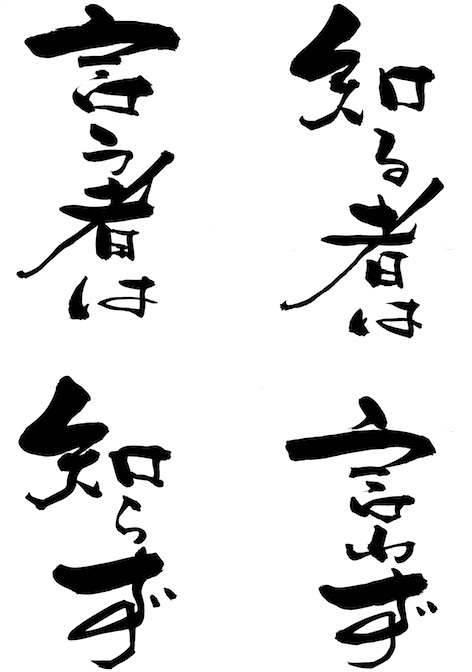 知る者は
言わず
言う者は
知らず